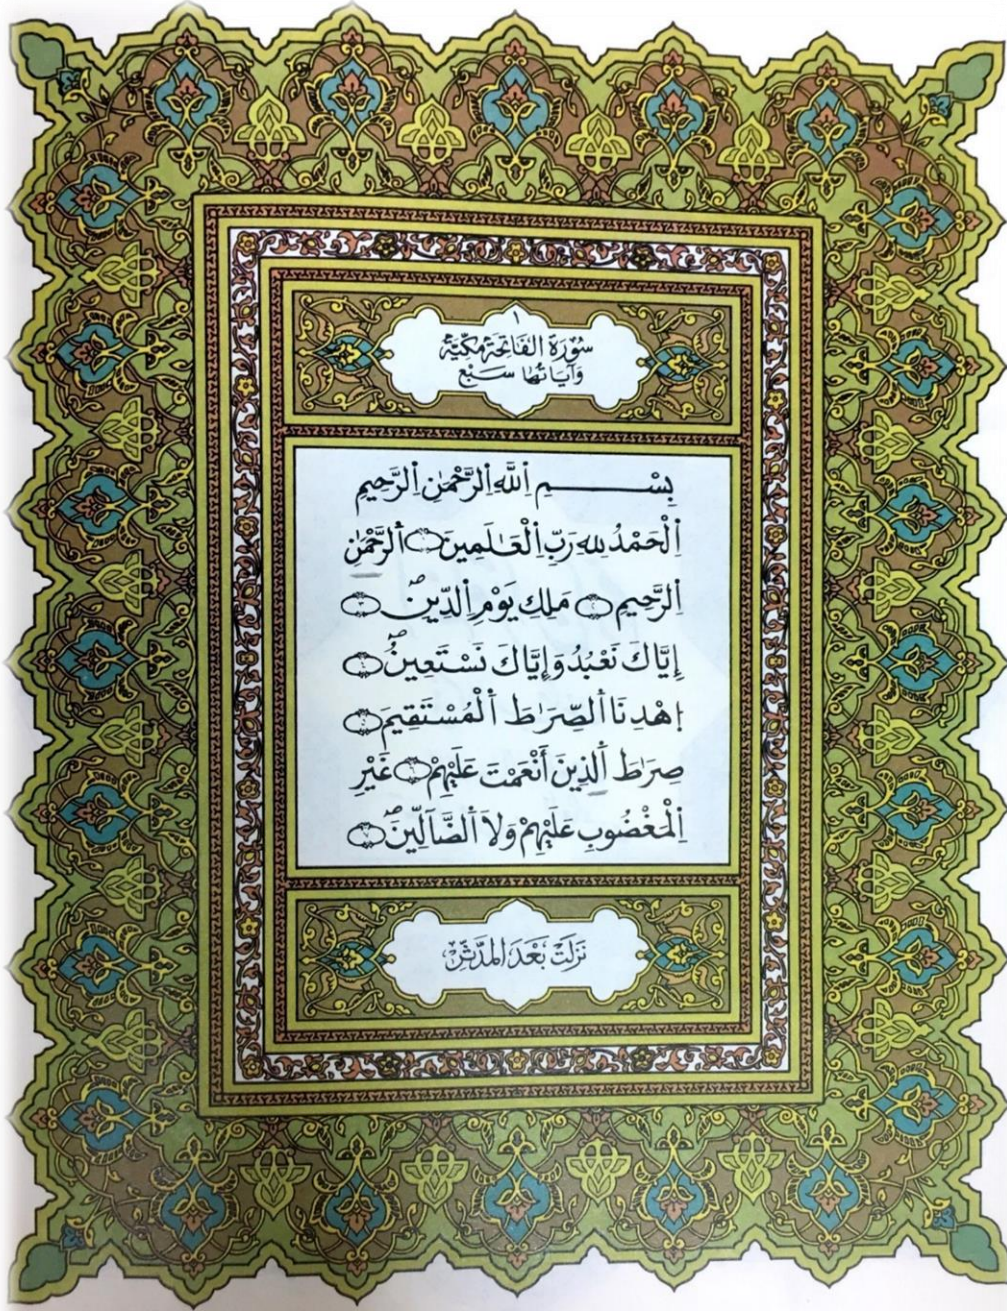 ١
سُورَة الفَاتِحَة مَكِّيَّة
وَآيَاتُهَا سَبْع
بِسْمِ اِ۬للَّهِ اِ۬لرَّحْمَٰنِ اِ۬لرَّحِيمِ
اِ۬لْحَمْدُ لِلهِ رَبِّ اِ۬لْعَٰلَمِينَ ١ اَ۬لرَّحْمَٰنِ
اِ۬لرَّحِيمِ ٢ مَلِكِ يَوْمِ اِ۬لدِّينِ ۖ ٣
إِيَّاكَ نَعْبُدُ وَإِيَّاكَ نَسْتَعِينُ ۖ ٤
اِ۪هْدِنَا اَ۬لصِّرَٰطَ اَ۬لْمُسْتَقِيمَ ٥
صِرَٰطَ اَ۬لذِينَ أَنْعَمْتَ عَلَيْهِمْ ٦ غَيْرِ
اِ۬لْمَغْضُوبِ عَلَيْهِمْ وَلَا اَ۬لضَّآلِّينَ ۖ ٧
نَزَلَتْ بَعْدَ المُدَّثِّر